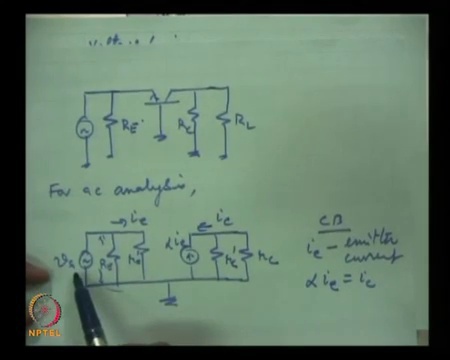 RE
RC
RL
For ac analysis,
ie
ic
vs
RE
re
αie
rc'
rc
CB
ie - emitter
current
αie = ic
NPTEL